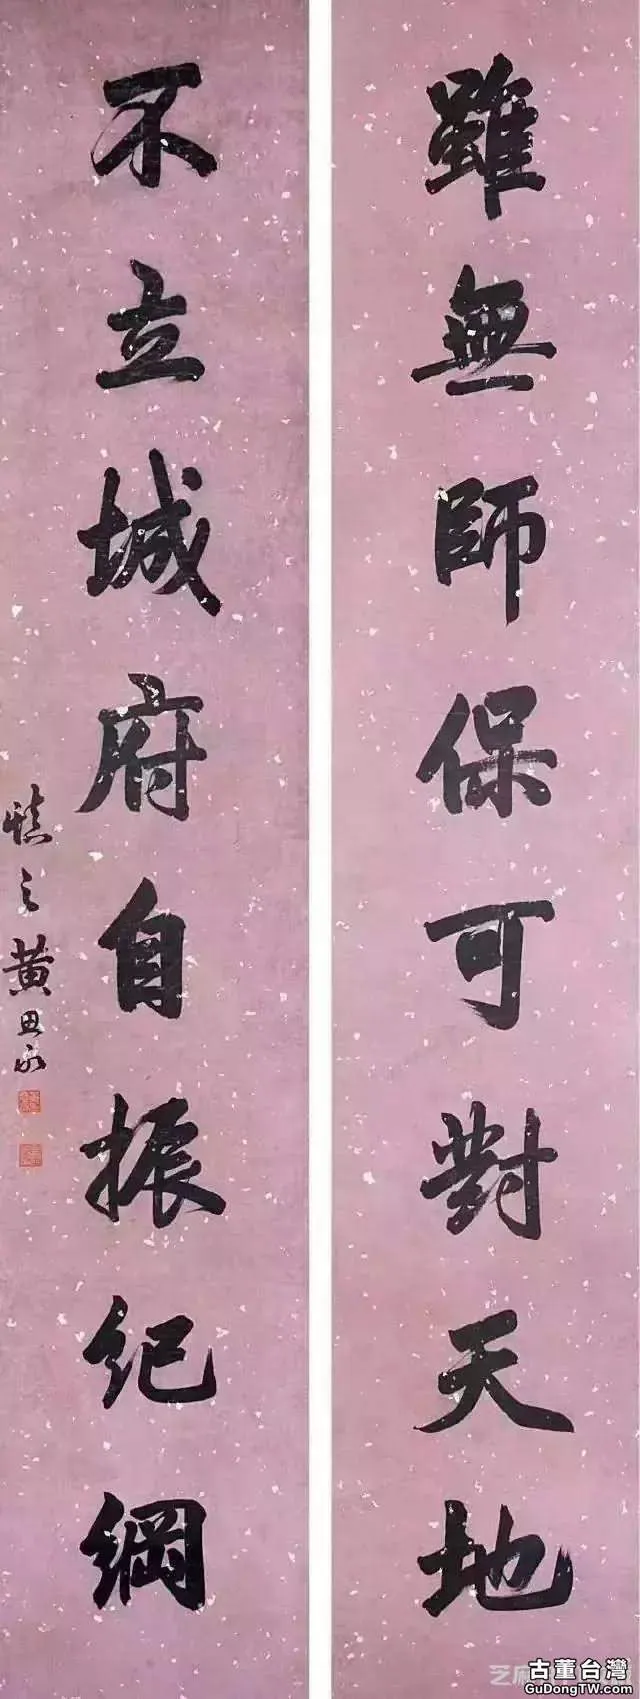 雖無師保可對天地
不立城府自振紀綱
慎之黃思永
古董台灣
GuDongTW.com